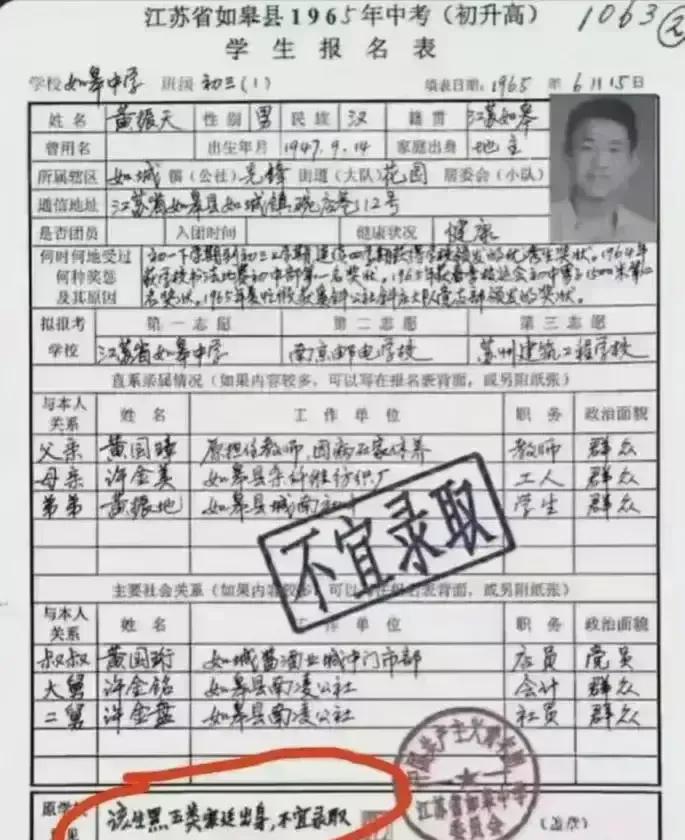 江苏省如皋县1965年中考（初升高）
1063 ②
学生报名表
学校 如皋中学 班级 初三（1） 填表日期：1965 年 6 月 15 日
姓名 黄振天 性别 男 民族 汉 籍贯 江苏如皋
曾用名 出生年月 1947.9.14 家庭出身 地主
所属辖区 如城 镇（公社）先锋 街道（大队）花园 居委会（小队）
通信地址 江苏省如皋县如城镇 巷112号
是否团员 入团时间 健康状况 健康
何时何地受过 初一下学期到初三上学期连续四学期获得学校颁发的优秀生奖状。1964年
何种奖惩 获学校书法比赛初中部第一名奖状。1965年获 初中男子1500米第二
及其原因 名奖状。1965年 公社 大队党支部颁发的奖状。
拟报考 第一志愿 第二志愿 第三志愿
学校 江苏省如皋中学 南京邮电学校 苏州建筑工程学校
直系亲属情况（如果内容较多，可以写在报名表背面，或另附纸张）
与本人关系 姓名 工作单位 职务 政治面貌
父亲 黄国 原担任教师，因病在家休养 教师 群众
母亲 许金美 如皋县 纤维纺织厂 工人 群众
弟弟 黄振地 如皋县城南初中 学生 群众
不宜录取
主要社会关系（如果内容较多，可以写在报名表背面，或另附纸张）
与本人关系 姓名 工作单位 职务 政治面貌
叔叔 黄国珩 如城 酒业城中门市部 店员 党员
大舅 许金铭 如皋县南凌公社 会计 群众
二舅 许金盘 如皋县南凌公社 社员 群众
中国共产主义青年团
江苏省如皋中学
委员会
原学校
见 该生黑五类家庭出身，不宜录取 （盖章）